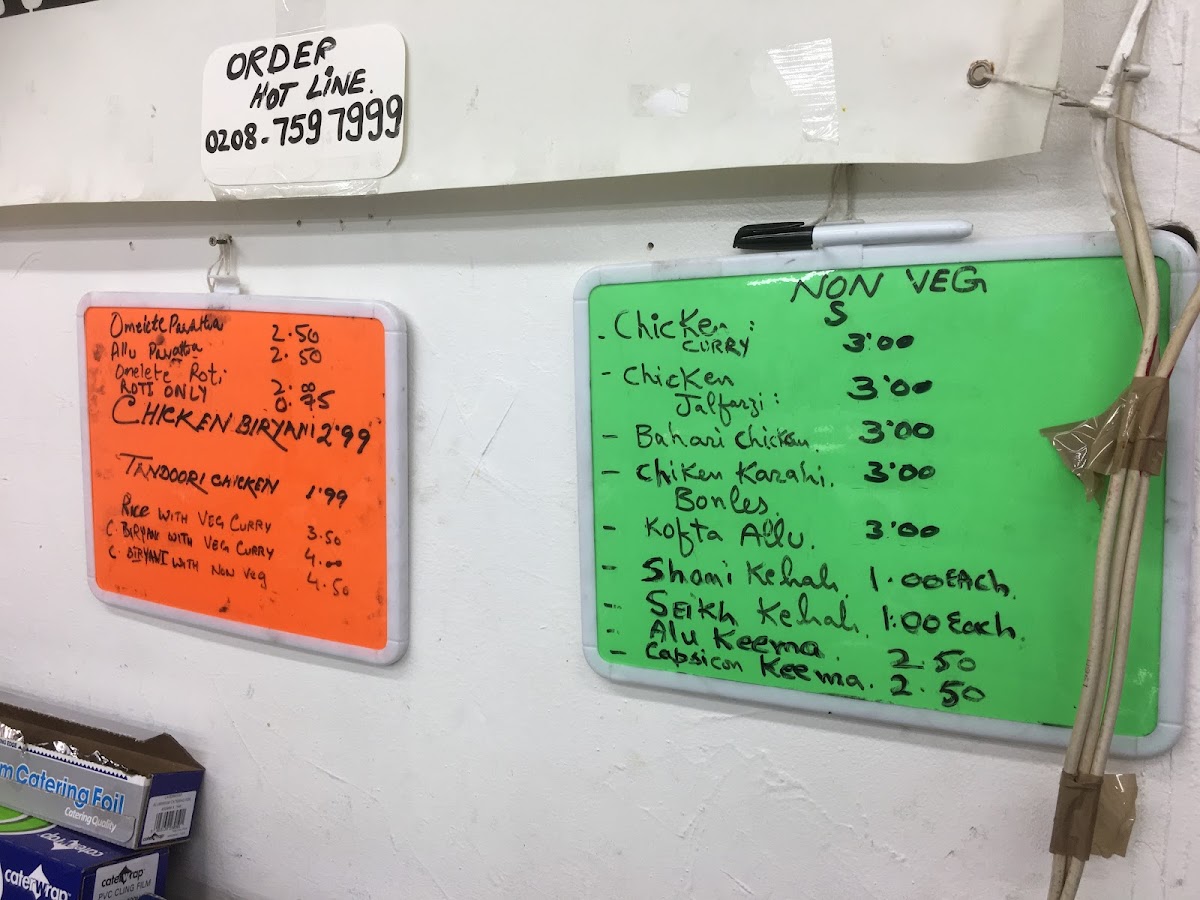 ORDER
HOT LINE.
0208-759 7999
Omelete Paratta 2.50
Allu Paratta 2.50
Omelete Roti 2.00
ROTI ONLY 0.75
CHICKEN BIRYANI 2.99
TANDOORI CHICKEN 1.99
RICE WITH VEG CURRY 3.50
C. BIRYANI WITH VEG CURRY 4.00
C. BIRYANI WITH NON VEG 4.50
NON VEG
S
- Chicken :
CURRY 3.00
- Chicken
Jalfarzi : 3.00
- Bahari Chicken 3.00
- Chiken Karahi. 3.00
Bonles.
- Kofta Allu. 3.00
- Shami Kebab. 1.00 EACH.
- SEIKH Kebab. 1.00 Each.
- Alu Keema. 2.50
- Capsicon Keema. 2.50
m Catering Foil
Catering Quality
caterwrap
caterwrap
caterwrap
PVC CLING FILM